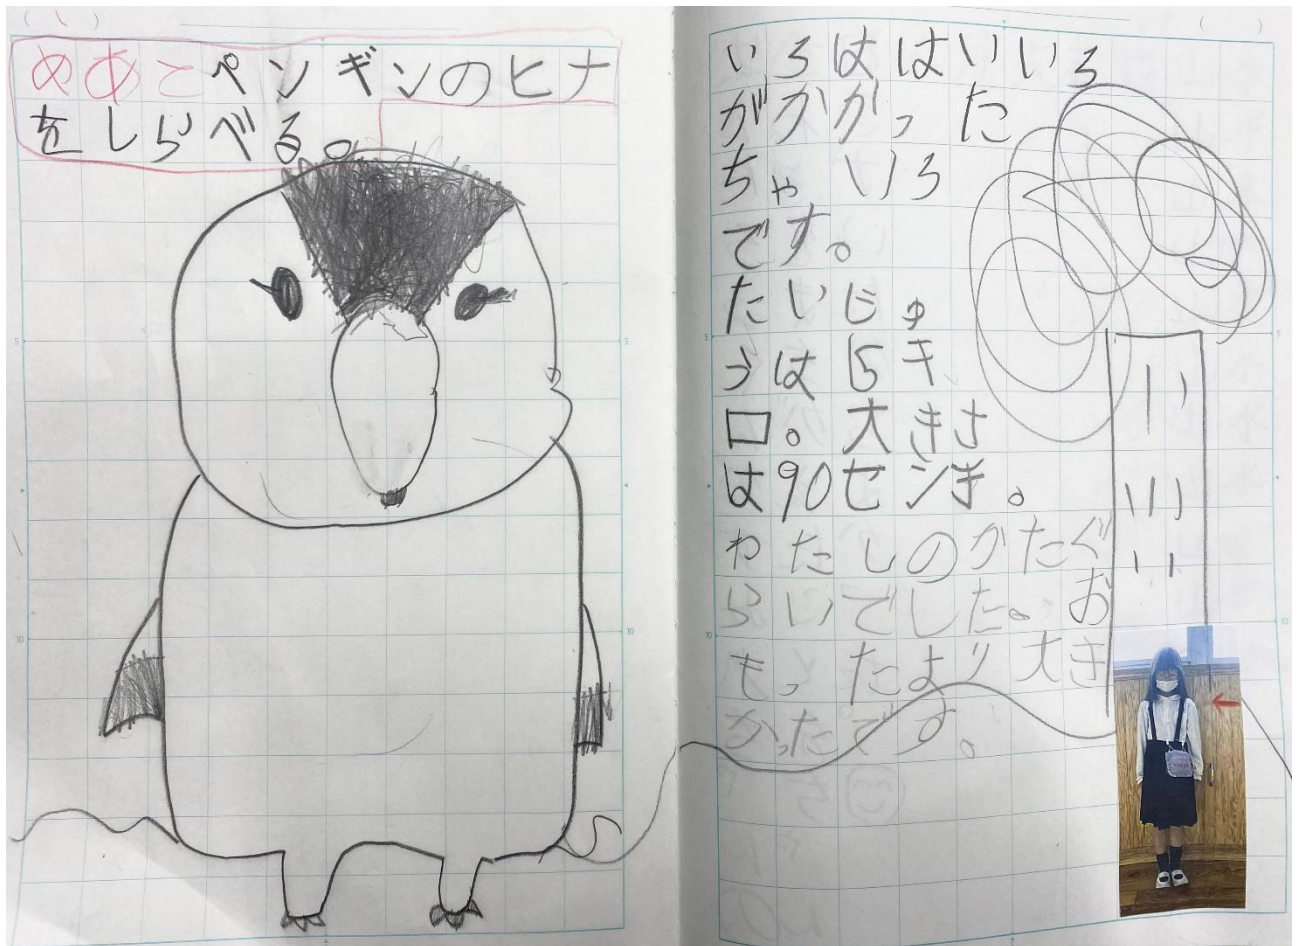 めあてペンギンのヒナ
をしらべる。
いろははいいろ
がかかった
ちゃいろ
です。
たいじゅ
うは15キ
ロ。大きさ
は90センチ。
わたしのかたぐ
らいでした。お
もったより大き
かったです。